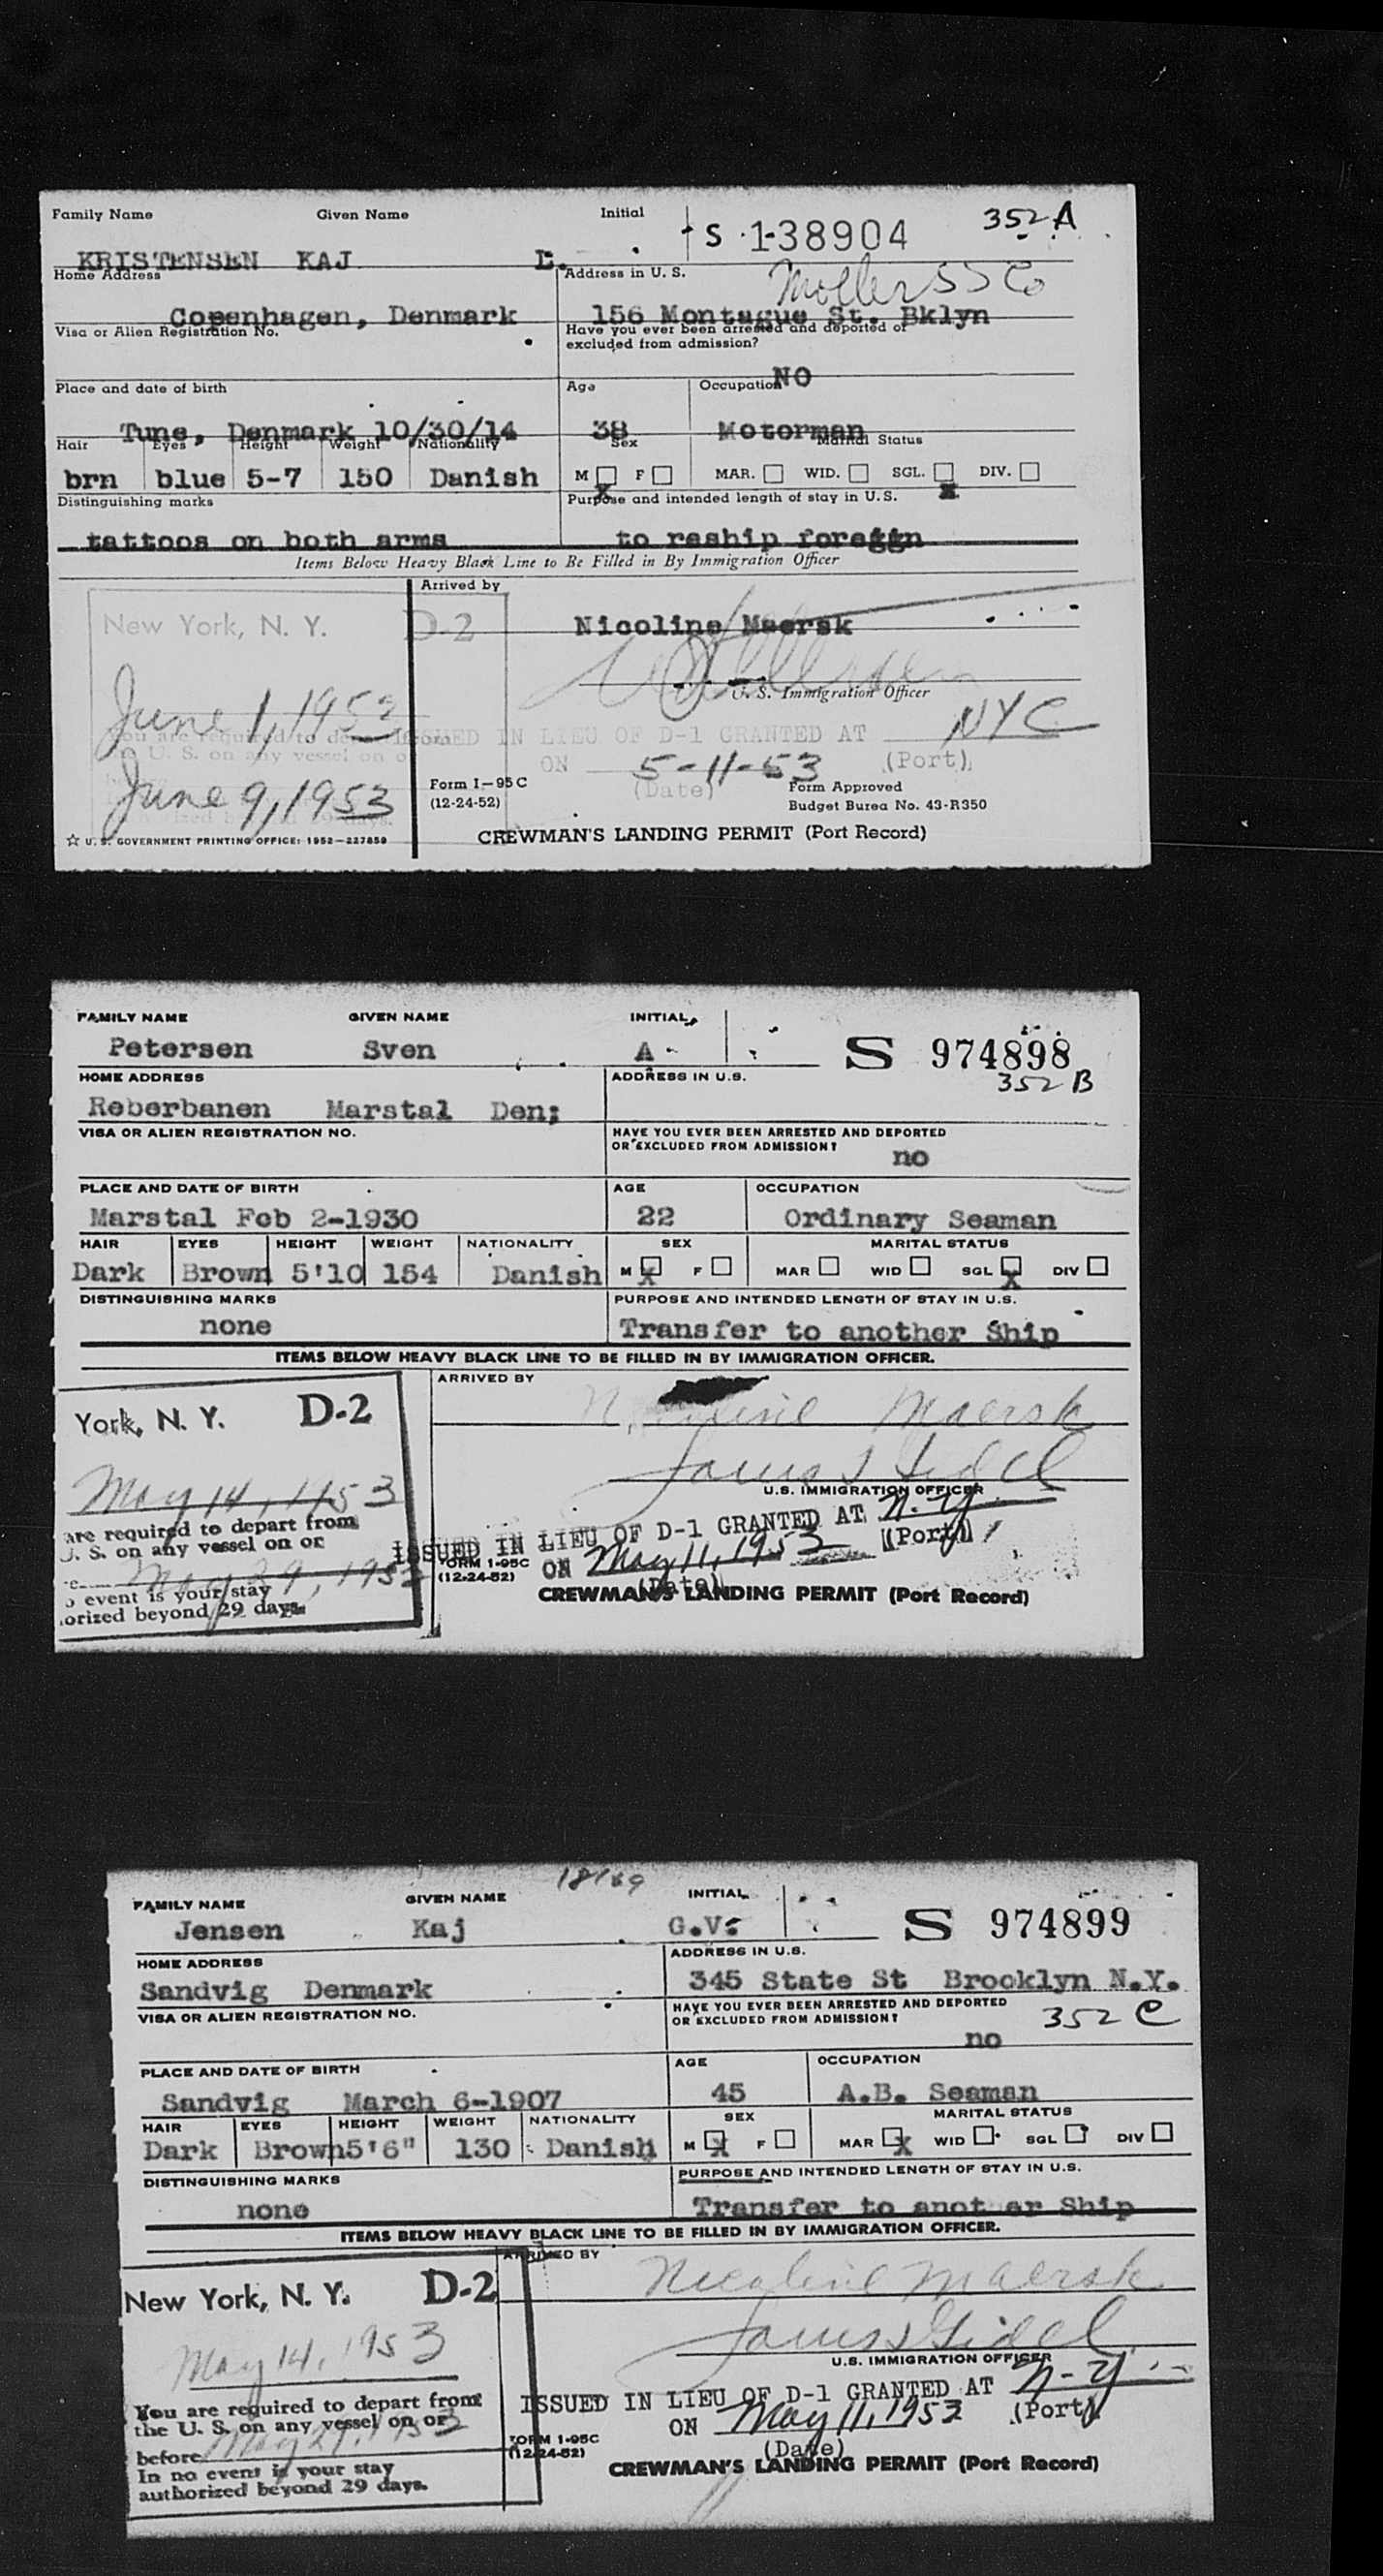 Family Name Given Name Initial
S 1-38904 352 A
KRISTENSEN KAJ L.
Home Address Address in U. S. Moller SS Co
Copenhagen, Denmark 156 Montague St. Bklyn
Visa or Alien Registration No. Have you ever been arrested and deported or
excluded from admission?
NO
Place and date of birth Age Occupation
Tune, Denmark 10/30/14 38 Motorman
Hair Eyes Height Weight Nationality Sex Marital Status
brn blue 5-7 150 Danish M F MAR. WID. SGL. DIV.
X X
Distinguishing marks Purpose and intended length of stay in U.S.
tattoos on both arms to reship foreggn
Items Below Heavy Black Line to Be Filled in By Immigration Officer
Arrived by
New York, N. Y. D-2 Nicoline Maersk
U. S. Immigration Officer
June 1, 1953 NYC
You are required to depart from ISSUED IN LIEU OF D-1 GRANTED AT
U. S. on any vessel on o ON 5-11-53 (Port)
June 9, 1953 Form I-95 C (Date) Form Approved
(12-24-52) Budget Burea No. 43-R350
☆ U. S. GOVERNMENT PRINTING OFFICE: 1952—227859 CREWMAN'S LANDING PERMIT (Port Record)
FAMILY NAME GIVEN NAME INITIAL
Petersen Sven A S 974898
352 B
HOME ADDRESS ADDRESS IN U.S.
Reberbanen Marstal Den;
VISA OR ALIEN REGISTRATION NO. HAVE YOU EVER BEEN ARRESTED AND DEPORTED
OR EXCLUDED FROM ADMISSION?
no
PLACE AND DATE OF BIRTH AGE OCCUPATION
Marstal Feb 2-1930 22 Ordinary Seaman
HAIR EYES HEIGHT WEIGHT NATIONALITY SEX MARITAL STATUS
Dark Brown 5'10 154 Danish M X F MAR WID SGL X DIV
DISTINGUISHING MARKS PURPOSE AND INTENDED LENGTH OF STAY IN U.S.
none Transfer to another Ship
ITEMS BELOW HEAVY BLACK LINE TO BE FILLED IN BY IMMIGRATION OFFICER.
ARRIVED BY
York, N. Y. D-2 Maersk
May 14, 1953
U.S. IMMIGRATION OFFICER
are required to depart from
U. S. on any vessel on or ISSUED IN LIEU OF D-1 GRANTED AT N.Y.
(Port)
May 29, 1953 FORM 1-95C ON May 11, 1953
(12-24-52) (Date)
o event is your stay
orized beyond 29 days. CREWMAN'S LANDING PERMIT (Port Record)
18169
FAMILY NAME GIVEN NAME INITIAL
Jensen Kaj G.V. S 974899
HOME ADDRESS ADDRESS IN U.S.
Sandvig Denmark 345 State St Brooklyn N.Y.
VISA OR ALIEN REGISTRATION NO. HAVE YOU EVER BEEN ARRESTED AND DEPORTED
OR EXCLUDED FROM ADMISSION? 352 C
no
PLACE AND DATE OF BIRTH AGE OCCUPATION
Sandvig March 6-1907 45 A.B. Seaman
HAIR EYES HEIGHT WEIGHT NATIONALITY SEX MARITAL STATUS
Dark Brown 5'6" 130 Danish M X F MAR X WID SGL DIV
DISTINGUISHING MARKS PURPOSE AND INTENDED LENGTH OF STAY IN U.S.
none Transfer to anot er Ship
ITEMS BELOW HEAVY BLACK LINE TO BE FILLED IN BY IMMIGRATION OFFICER.
ARRIVED BY
New York, N. Y. D-2 Nicoline Maersk
May 14, 1953
U.S. IMMIGRATION OFFICER
You are required to depart from ISSUED IN LIEU OF D-1 GRANTED AT N-Y
the U. S. on any vessel on or ON May 11, 1953 (Port)
before May 29, 1953 FORM 1-95C (Date)
(12-24-52)
In no event is your stay CREWMAN'S LANDING PERMIT (Port Record)
authorized beyond 29 days.